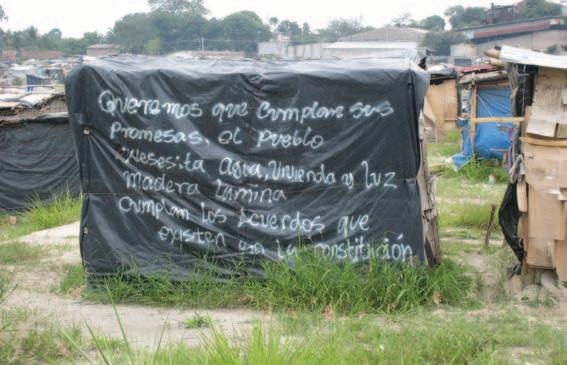 Queramos que Cumplan sus
Promesas, el Pueblo
Nesesita Agua, Vivienda y Luz
Madera Lamina
Cumplan los Acuerdos que
existen en La Constitución